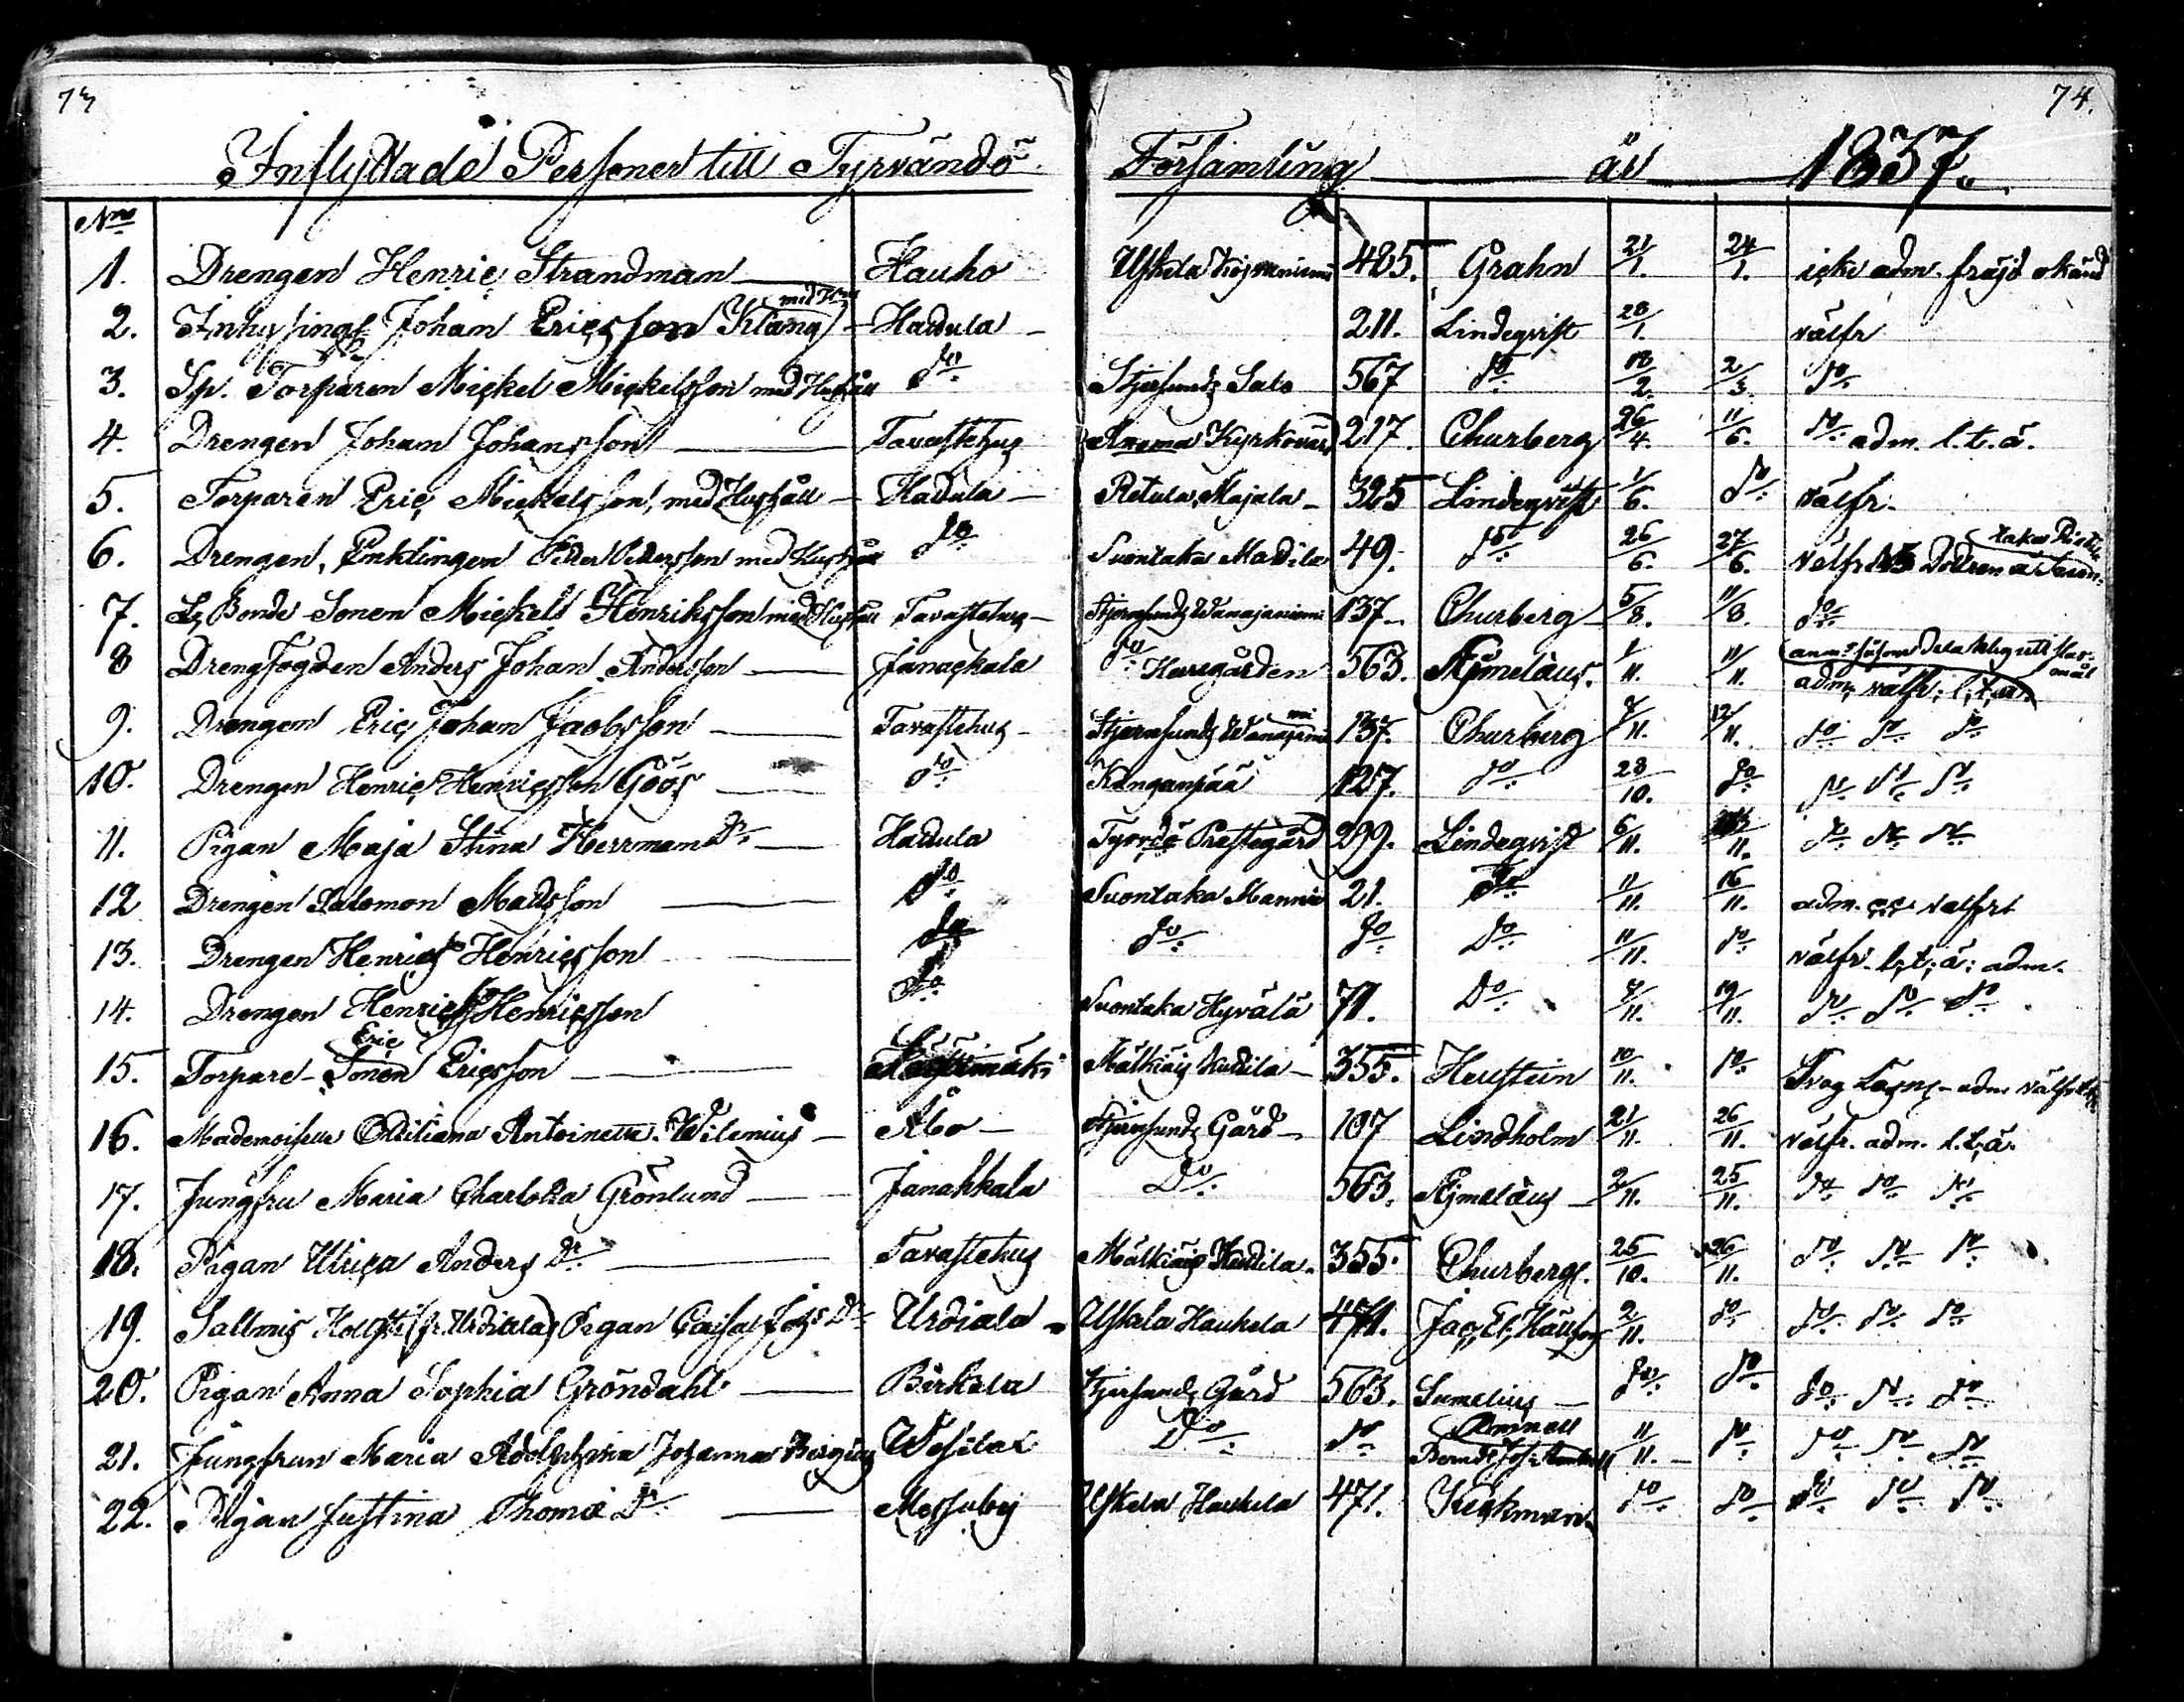 73 74.
Inflyttade Personer till Tyrvändö Församling år 1837.
Nro
1. Drengen Henric Strandman — Hauho Uskila 485. Grahn 21/1. 24/1. icke adm. frejd okänd
2. Inhysinge Johan Ericsson Klang med — Hattula — 211. Lindeqvist 28/1. välfr
3. Sp. Torparen Mickel Mickelsson med Hushåll do Stjersunds Salo 567 do 18/2. 2/3. do
4. Drengen Johan Johansson — Tavastehus 217. Churberg 26/4. 11/6. do adm. l.t.ä.
5. Torparen Eric Mickelsson, med Hushåll — Hattula — Retula Majala — 325 Lindeqvist 1/6. do välfr.
6. Drengen, Enklingen Petter Pettersson med Hushåll do Suontaka Mattila 49. do 26/6. 27/6. välfr
7. Bonde Sonen Mickel Henriksson med Hushåll Tavastehus — Stjernsunds Wanajaniemi 137. Churberg 5/8. 11/8. do
8 Drengfogden Anders Johan Andersson — Janackala do Herregården 563. Ajmelæus. 1/11. 11/11. adm. välfr. l.t.ä.
9. Drengen Eric Johan Jacobsson — Tavastehus — Stjernsunds Wanajaniemi 137. Churberg 7/11. 12/11. do do do
10. Drengen Henric Henricsson Göös — do Kanganpää 127. do 28/10. do do do do
11. Pigan Maja Stina Herrmans Dr — Hattula Tyrvdö Prestegård 299. Lindeqvist 6/11. do do do
12 Drengen Salomon Mattsson — do Suontaka Mannis 21. do 11/11. 16/11. adm. välfr
13. Drengen Henric Henricsson — do do do Do 11/11. do välfr. l.t.ä. adm.
14. Drengen Henric Henricsson do Suontaka Hyvälä 71. Do 7/11. 19/11. do do do
15. Torpare-Sonen Eric Ericsson — Mälkiäis Kudila — 355. Hellstein 10/11. do Svag Läsn — adm välfr
16. Mademoiselle Antoinetta Wilenius — Åbo — Stjernsunds Gård — 107 Lindholm 21/11. 26/11. välfr. adm. l.t.ä.
17. Jungfru Maria Charlotta Grönlund — Janakkala Do 563. Ajmelæus — 2/11. 25/11. do do do
18. Pigan Ulrica Anders Dr — Tavastehus Mälkiäis Kudila. 355. Churberg. 25/10. 26/11. do do do
19. (fr. Urdiala) Pigan Caisa Dr Urdiala — Uskela Haukela 471. 2/11. do do do do
20. Pigan Anna Sophia Gröndahl — Birkala Stjersunds Gård 563. Sumelius — do do do do do
21. Jungfrun Maria Adolphina Johanna Bergius Wesilax Do do 11/11. — do do do do
22. Pigan Justina Thomæ Dr — Messuby Uskela Haukela 471. Kjäkman do do do do do